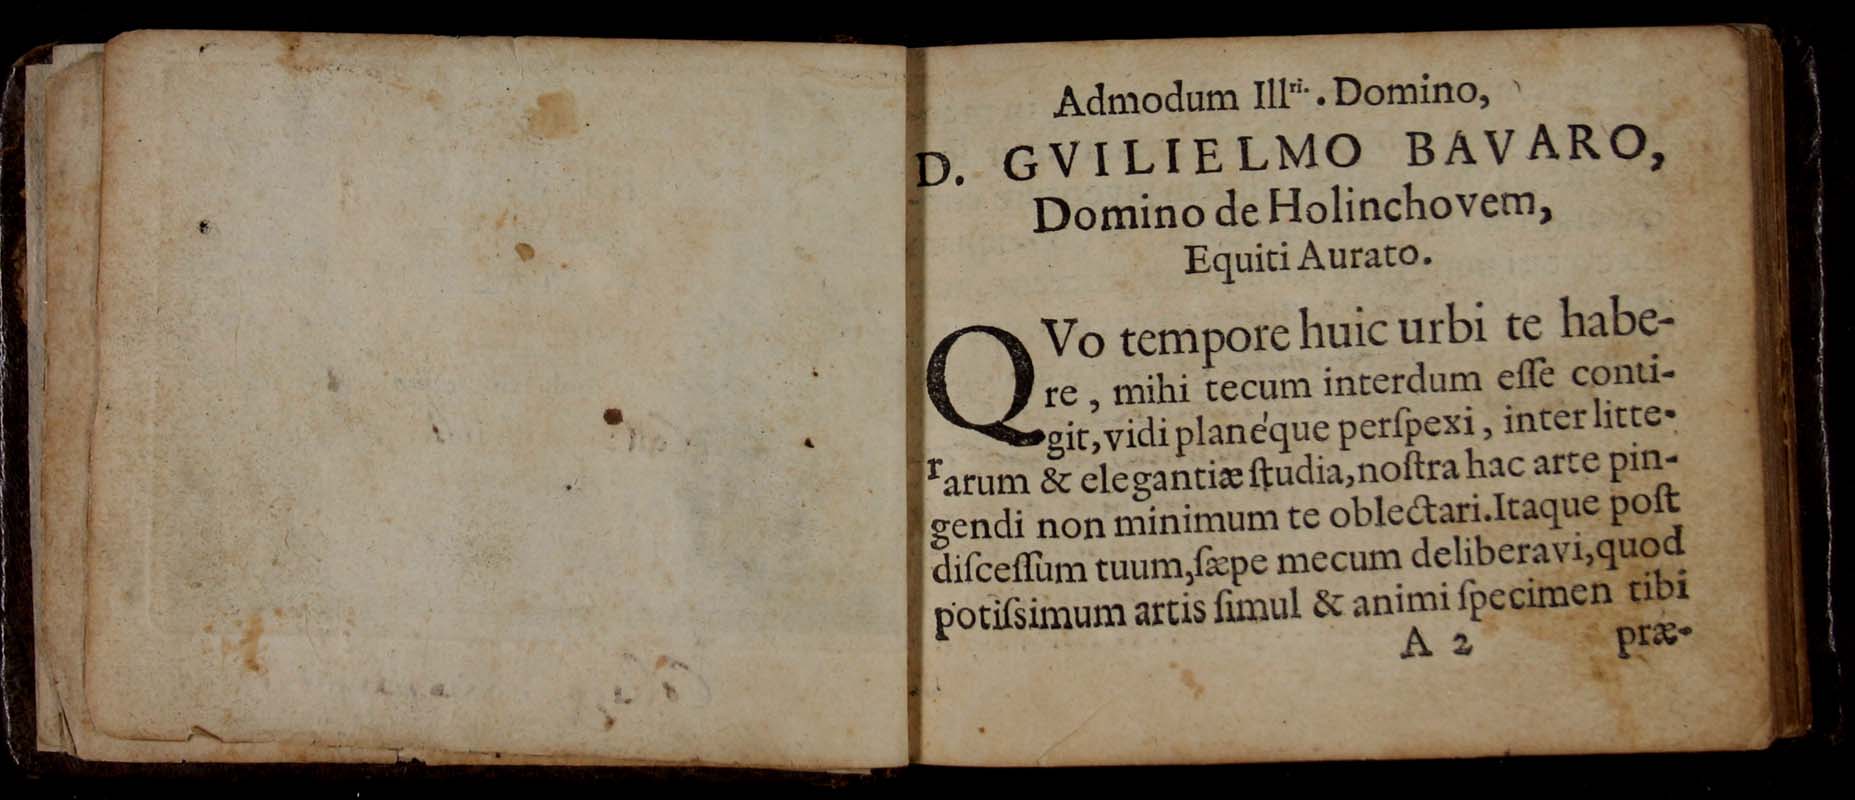 Admodum Illri. . Domino,
D. GVILIELMO BAVARO,
Domino de Holinchovem,
Equiti Aurato.
QVo tempore huic urbi te habe-
re, mihi tecum interdum eſſe conti-
git, vidi planéque perſpexi, inter litte-
rarum & elegantiæ ſtudia, noſtra hac arte pin-
gendi non minimum te oblectari. Itaque poſt
diſceſſum tuum, ſæpe mecum deliberavi, quod
potiſsimum artis ſimul & animi ſpecimen tibi
A 2 præ-